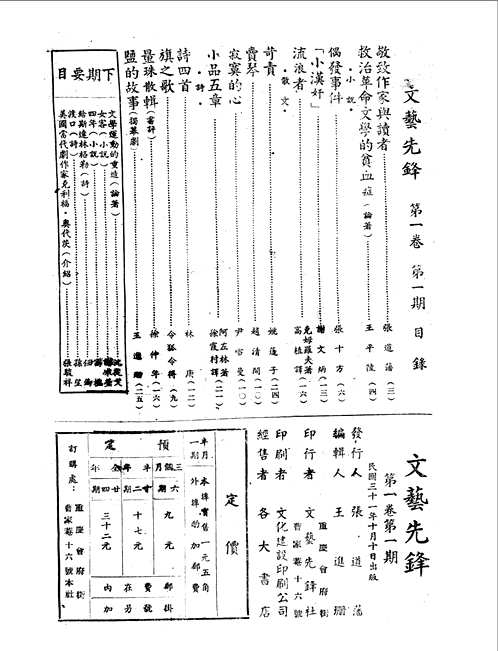 文藝先鋒 第一卷 第一期 目錄
敬致作家與讀者……張道藩（三）
救治革命文學的貧血症（論著）……王平陵（四）
·小說·
偶發事件……張十方（六）
「小漢奸」……謝文炳（一三）
流浪者……克姆羅夫著 高植譯（一六）
·散文·
苛責……姚蓬子（二四）
賣琴……趙清閣（一〇）
寂寞的心……尹雪曼（一〇）
小品五章……阿左林著 徐霞村譯（二一）
·詩·
詩四首……林庚（一二）
旗之歌……令狐令得（九）
量珠散輯（書評）……徐仲年（一六）
鹽的故事（獨幕劇）……王進珊（二五）
下期要目
文學運動的重造（論著）……沈從文
女客（小說）
四年（小說）
給斯達林格勒（詩）
渡口（詩）……孫望
美國當代劇作家克利福·奧代茨（介紹）……張駿祥
文藝先鋒
第一卷第一期
民國三十一年十月十日出版
發行人 張道藩
編輯人 王進珊
印行者 文藝先鋒社
重慶會府街
曹家菴十六號
印刷者 文化建設印刷公司
經售者 各大書店
定價
每月一期 本埠實售一元五角 外埠酌加郵費
預定
三個月 六期 九元
半年 十二期 十七元
全年 廿四期 三十二元
郵掛費號在另內加
訂購處：
重慶會府街
曹家菴十六號本社